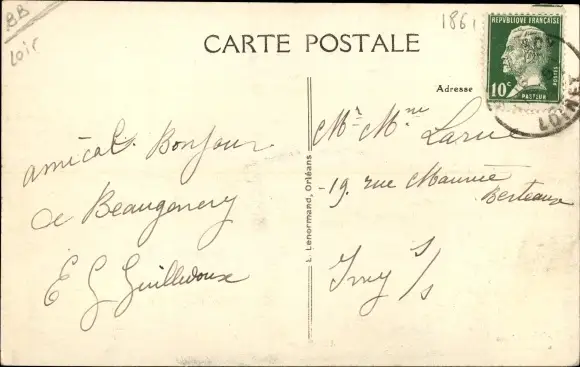 BB
Loir
1861
CARTE POSTALE
RÉPUBLIQUE FRANÇAISE
POSTES
10c
PASTEUR
Adresse
amical Bonjour
de Beaugency
E G Guilledoux
L. Lenormand, Orléans
Mr Mme Larue
19. rue Maurice
Berteaux
Ivry s/s